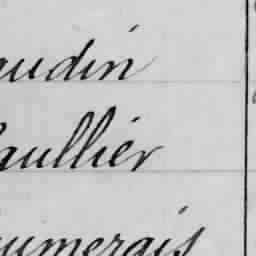 audin
aullier
aumerais